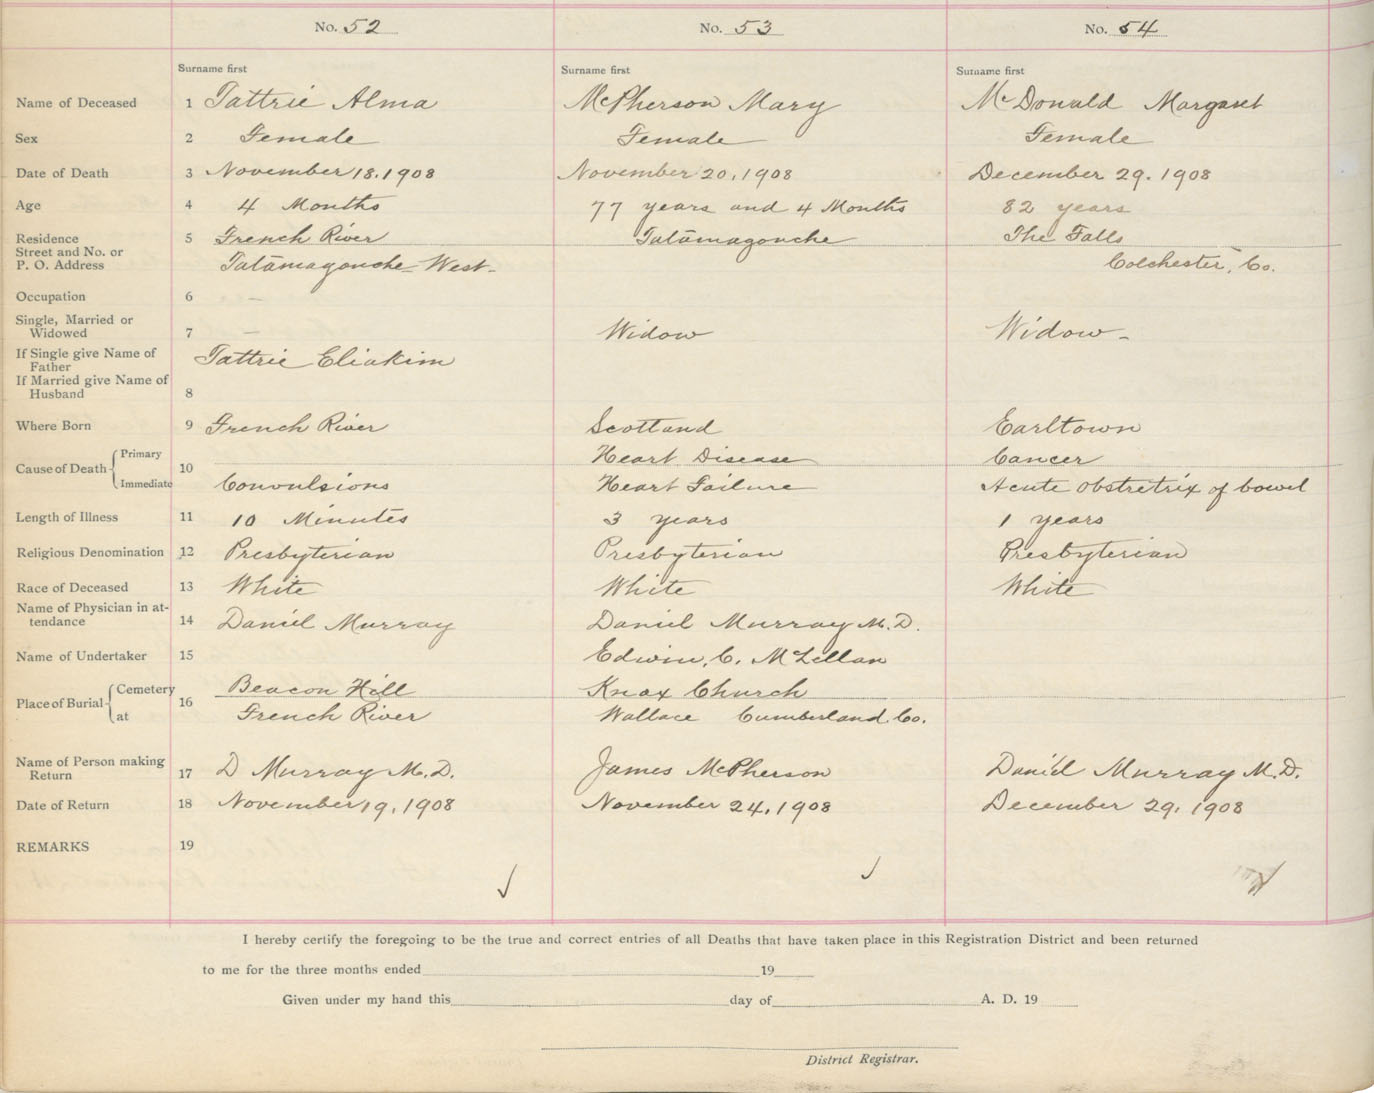 No. 52 No. 53 No. 54
Surname first Surname first Surname first
Name of Deceased 1 Tattrie Alma McPherson Mary McDonald Margaret
Sex 2 Female Female Female
Date of Death 3 November 18, 1908 November 20, 1908 December 29. 1908
Age 4 4 Months 77 years and 4 Months 82 years
Residence 5 French River Tatamagouche The Falls
Street and No. or
P. O. Address Tatamagouche West- Colchester, Co.
Occupation 6 –
Single, Married or
Widowed 7 – Widow Widow –
If Single give Name of
Father Tattrie Eliakim
If Married give Name of
Husband 8
Where Born 9 French River Scotland Earltown
Cause of Death 10 Primary Heart Disease Cancer
Immediate Convulsions Heart Failure Acute obstretrix of bowel
Length of Illness 11 10 Minutes 3 years 1 years
Religious Denomination 12 Presbyterian Presbyterian Presbyterian
Race of Deceased 13 White White White
Name of Physician in at-
tendance 14 Daniel Murray Daniel Murray M.D.
Name of Undertaker 15 Edwin, C. McLellan
Place of Burial 16 Cemetery Beacon Hill Knox Church
at French River Wallace Cumberland. Co.
Name of Person making
Return 17 D Murray M.D. James McPherson Daniel Murray M.D.
Date of Return 18 November 19, 1908 November 24, 1908 December 29, 1908
REMARKS 19
I hereby certify the foregoing to be the true and correct entries of all Deaths that have taken place in this Registration District and been returned
to me for the three months ended 19
Given under my hand this day of A. D. 19
District Registrar.